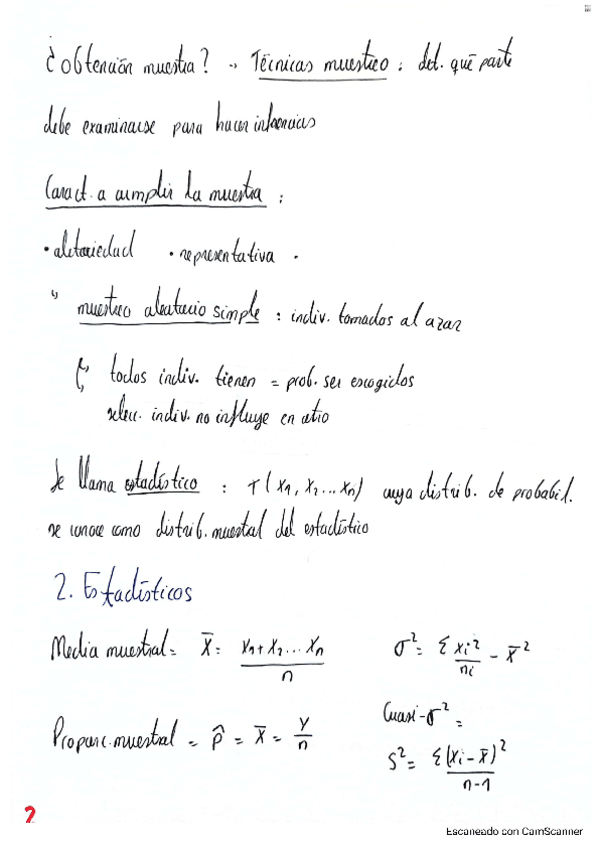 ¿obtención muestra? → Técnicas muestreo : det. qué parte
debe examinarse para hacer inferencias
Caract. a cumplir la muestra :
• aleatoriedad • representativa .
↳ muestreo aleatorio simple : indiv. tomados al azar
↳ todos indiv. tienen = prob. ser escogidos
selecc. indiv. no influye en otro
Se llama estadístico : T(X1, X2 ... Xn) cuya distrib. de probabil.
se conoce como distrib. muestral del estadístico
2. Estadísticos
Media muestral = X̄ = (X1 + X2 ... Xn) / n
σ² = Σ xi² / ni - x̄²
Proporc. muestral = p̂ = X̄ = Y / n
Cuasi-σ² =
S² = Σ(xi - x̄)² / n-1
2
Escaneado con CamScanner